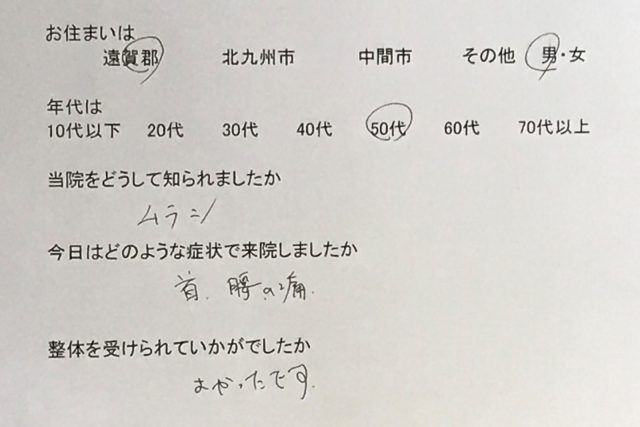 お住まいは
遠賀郡 北九州市 中間市 その他 男・女
年代は
10代以下 20代 30代 40代 50代 60代 70代以上
当院をどうして知られましたか
ムラシ
今日はどのような症状で来院しましたか
首、腰の痛
整体を受けられていかがでしたか
よかったです.